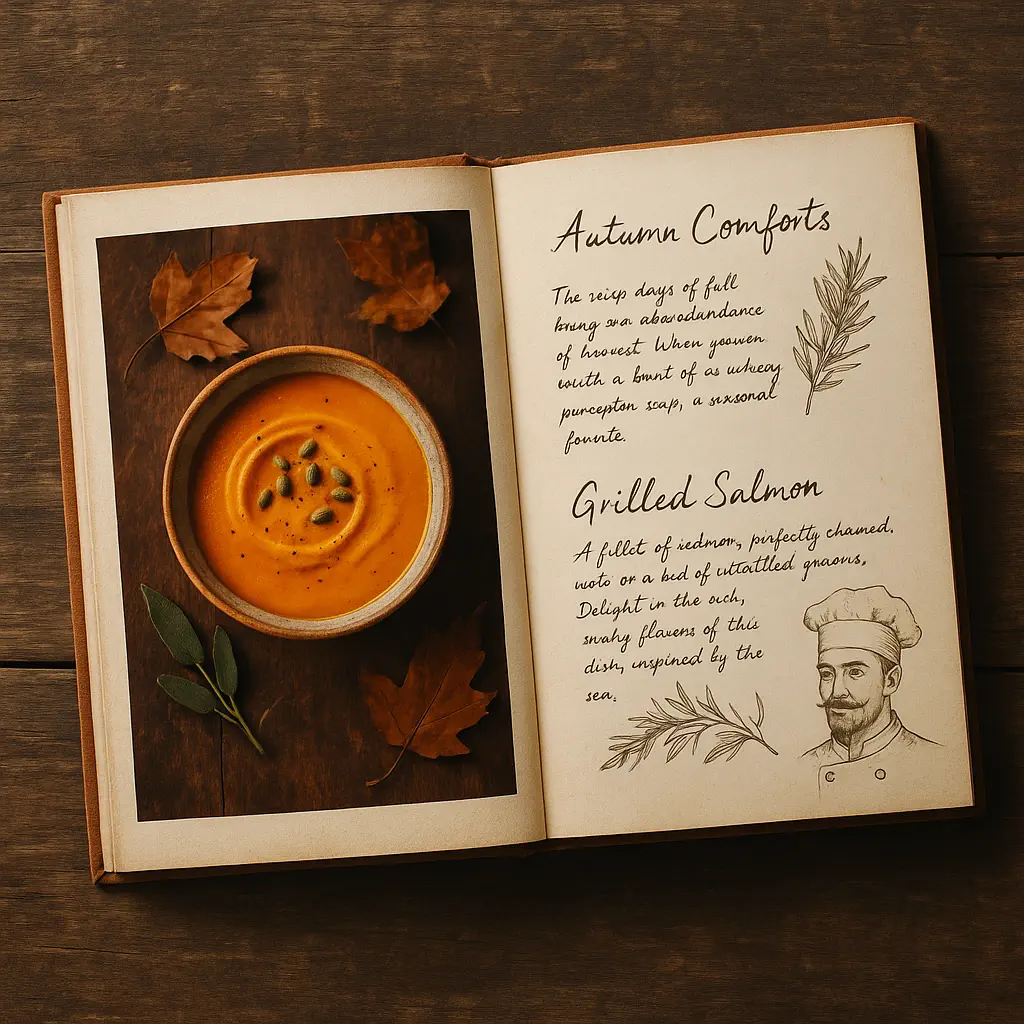 Autumn Comforts
The reisp days of full
brung sra aboodundance
of hrovest. When yoowen
couth a brunt of as wheay
purcepton soap, a sixsonal
founte.
Grilled Salmon
A fillct of redmom, pirfectly chamed,
woto or a bed of uttattled graons,
Delight in the och,
snahy flavers of this
dish, unspined by the
sea.